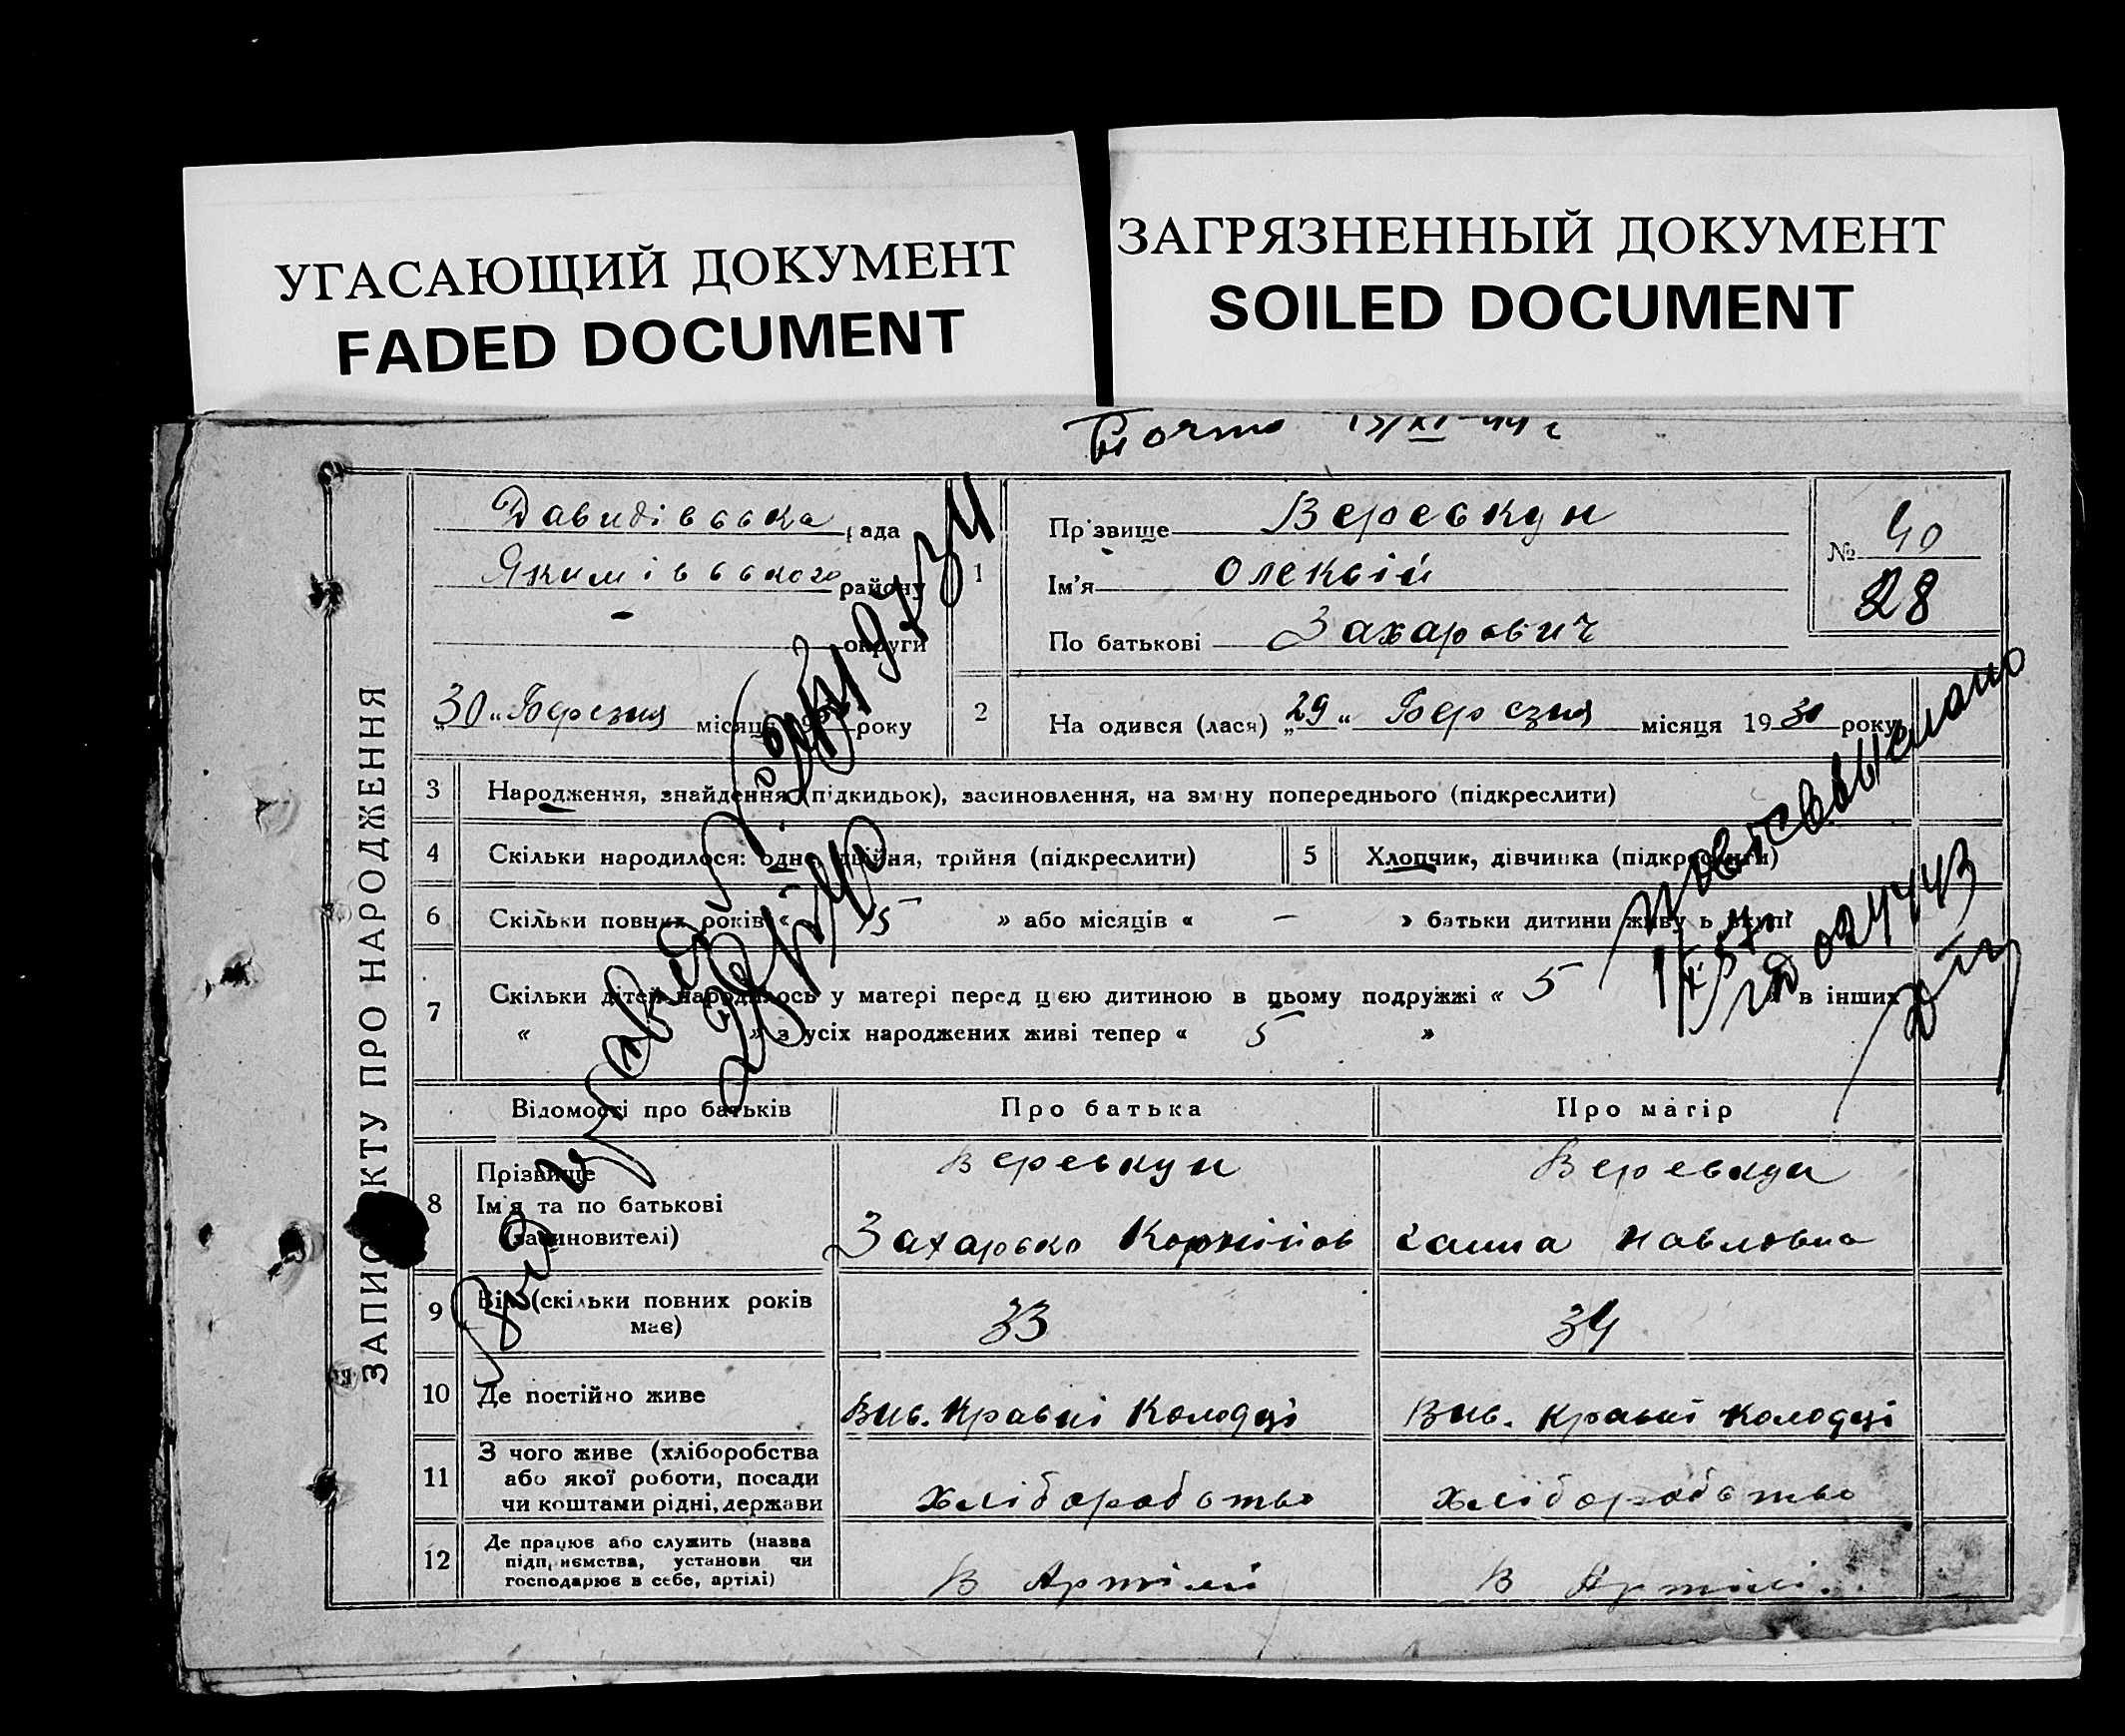 УГАСАЮЩИЙ ДОКУМЕНТ
FADED DOCUMENT
ЗАГРЯЗНЕННЫЙ ДОКУМЕНТ
SOILED DOCUMENT
ЗАПИС КТУ ПРО НАРОДЖЕННЯ
Давидівська рада
Якимівського району
— округи
„30 „ Березня місяця року
1
Прізвище Веревкун
Ім'я Олексій
По батькові Захарович
№ 40
28
2
На одився (лася) „29 „ Березня місяця 1930 року
3 Народження, знайдення (підкидьок), засиновлення, на зміну попереднього (підкреслити)
4 Скільки народилося: одно, двійня, трійня (підкреслити)
5 Хлопчик, дівчинка (підкреслити)
6 Скільки повних років « 15 » або місяців « — » батьки дитини живу ь вкупі
7 Скільки дітей народилось у матері перед цією дитиною в цьому подружжі « 5 в інших
« » з усіх народжених живі тепер « 5 »
Відомості про батьків
Про батька
Про матір
8 Прізвище
Ім'я та по батькові
(засиновителі)
Веревкун
Захарько Корнійов
Веревкун
Ганна Павловна
9 Вік (скільки повних років
має)
33
34
10 Де постійно живе
Вис. Кравні Колодці
Вис. Кравні Колодці
11 З чого живе (хліборобства
або якої роботи, посади
чи коштами рідні, держави
хліборобство
хліборобство
12 Де працює або служить (назва
підприємства, установи чи
господарює в себе, артілі)
В Артілі
В Артілі